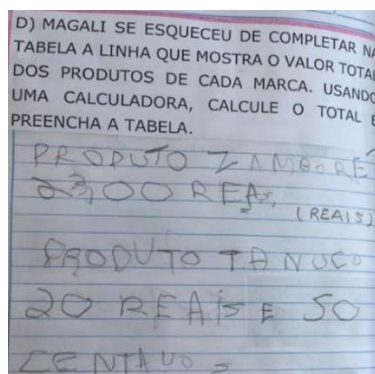 D) MAGALI SE ESQUECEU DE COMPLETAR NA
TABELA A LINHA QUE MOSTRA O VALOR TOTAL
DOS PRODUTOS DE CADA MARCA. USANDO
UMA CALCULADORA, CALCULE O TOTAL E
PREENCHA A TABELA.
PRODUTO ZAMBORÉ
23,00 REAS.
(REAIS)
PRODUTO TANUCO
20 REAIS E 50
CENTAVOS